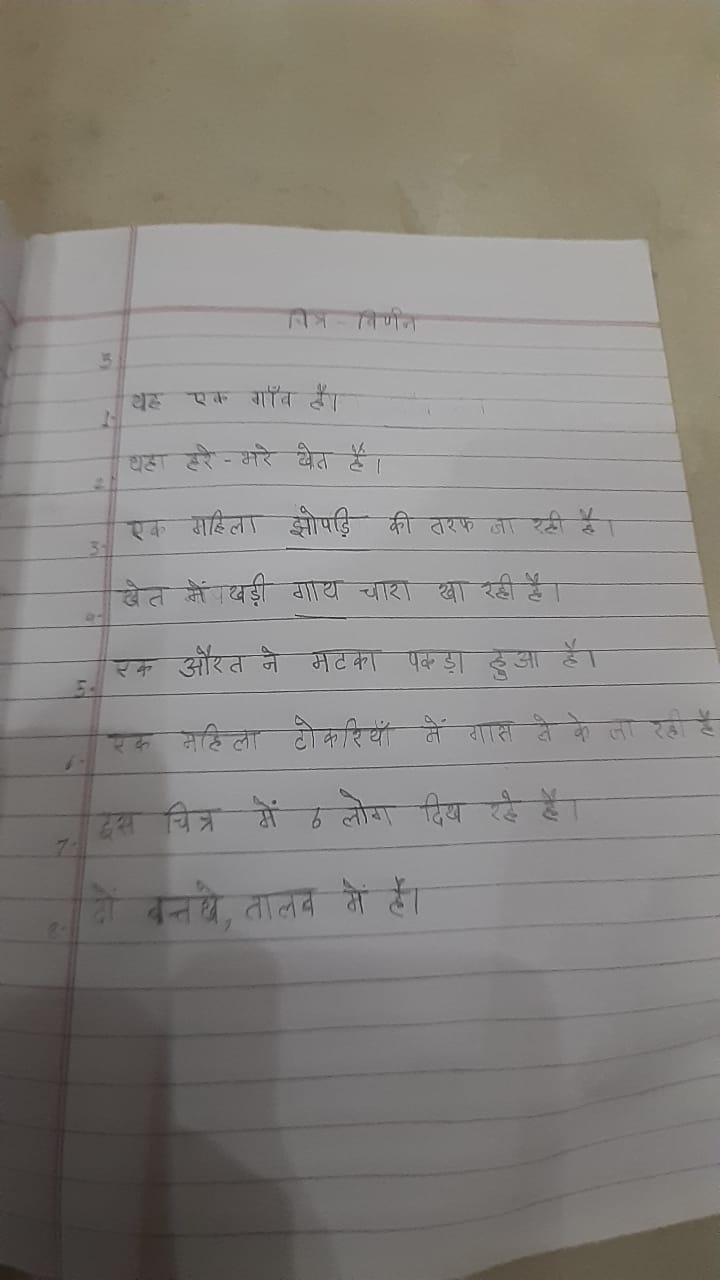 चित्र - विर्णन
3
1- यह एक गाँव है।
2- यहा हरे - भरे खेत है।
3- एक महिला झोपड़ि की तरफ जा रही है।
4- खेत में खड़ी गाय चारा खा रही है।
5- एक औरत ने मटका पकड़ा हुआ है।
6- एक महिला टोकरियाँ में गास ले के जा रही है
7- इस चित्र में 6 लोग दिख रहे है।
8- दो बत्तखे, तालब में है।